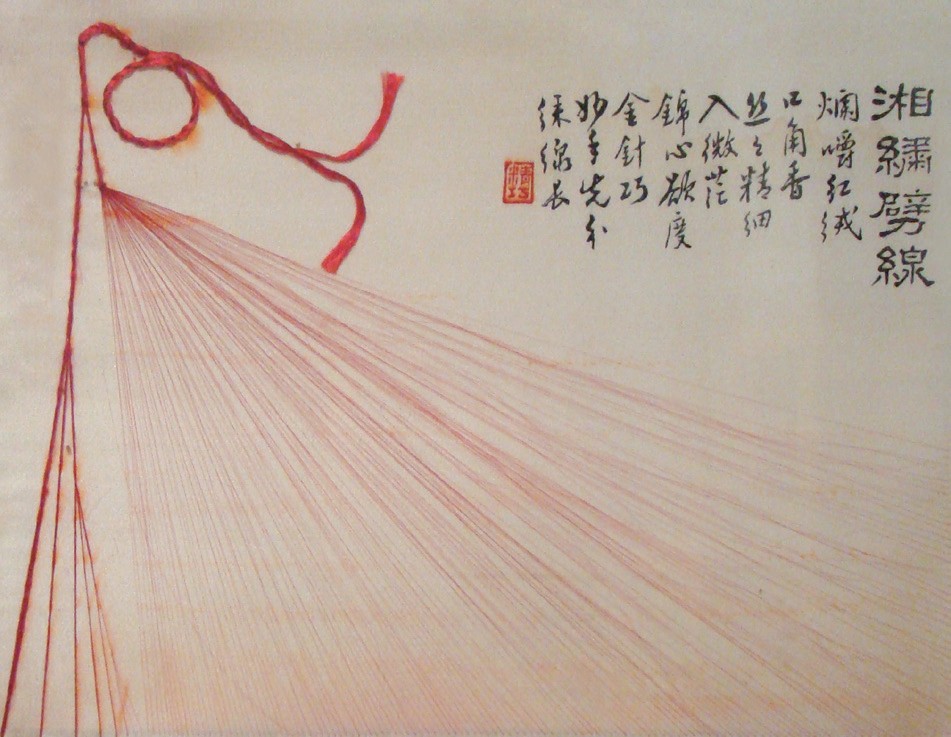 湘繡劈線
爛嚼紅絨
口角香
絲々精細
入微茫
錦心欲度
金針巧
妙手先分
綵線長